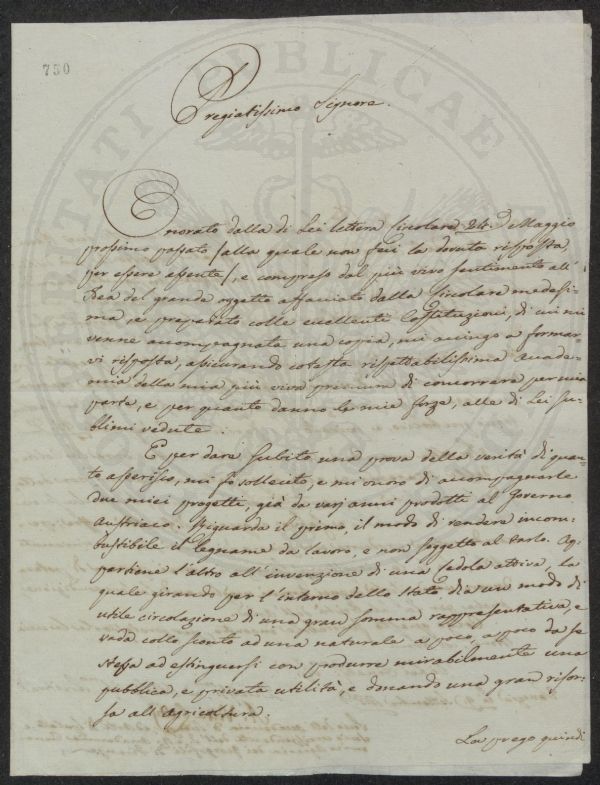 750
Pregiatissimo Signore.
Onorato dalla di Lei lettera Circolare 24. Maggio
prossimo passato /alla quale non feci la dovuta risposta,
per essere assente/, e compreso dal più vivo sentimento all'
Idea del grande oggetto affacciato dalla Circolare medesi-
ma, e preparato colle eccellenti Costituzioni, di cui mi
venne accompagnata una copia, mi accingo a formar-
vi risposta, assicurando cotesta rispettabilissima accade-
mia della mia più viva premura di concorrere per mia
parte, e per quanto danno le mie forze, alle di Lei su-
blimi vedute.
E per dare subito una prova della verità di quan-
to asserisco, mi fò sollecito, e mi onoro di accompagnarle
due miei progetti, già da varj anni prodotti al Governo
austriaco. Riguarda il primo, il modo di rendere incom-
bustibile il legname da lavoro, e non soggetto al tarlo. Ap-
partiene l'altro all'invenzione di una cedola attiva, la
quale girando per l'interno dello Stato, dia un modo di
utile circolazione di una gran somma rappresentativa, e
vada collo sconto ad una naturale a poco, a poco da se
stessa ad estinguersi con produrre mirabilmente una
pubblica, e privata utilità, e donando una gran risor-
sa all'agricoltura.
La prego quindi